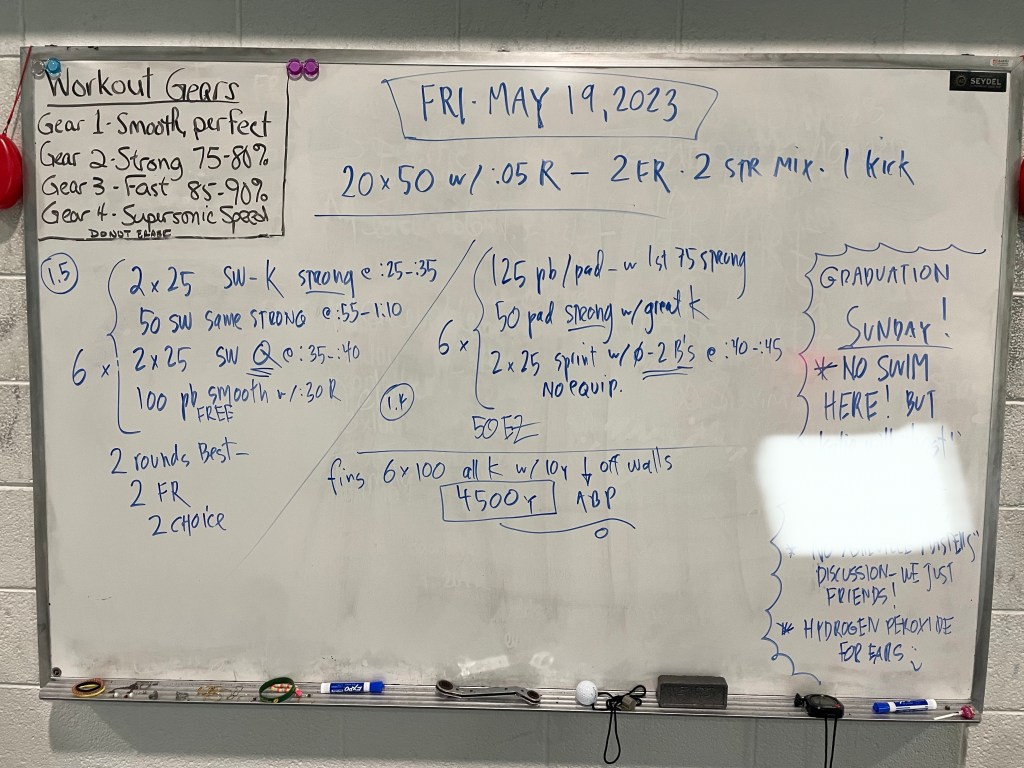 Workout Gears
Gear 1 - Smooth, perfect
Gear 2 - Strong 75-80%
Gear 3 - Fast 85-90%
Gear 4 - Supersonic Speed
DO NOT ERASE
SEYDEL
FRI. MAY 19, 2023
20 x 50 w/ :05 R – 2 FR · 2 STR MIX · 1 kick
1.5
6 x
2 x 25 SW-K strong @ :25-:35
50 SW same STRONG @ :55-1:10
2 x 25 SW Q @ :35-:40
100 pb smooth w/ :30 R
FREE
2 rounds Best-
2 FR
2 CHOICE
6 x
125 pb/pad - w 1st 75 strong
50 pad strong w/ great k
2 x 25 sprint w/ 0-2 B's @ :40-:45
No equip.
1.4
50 EZ
fins 6 x 100 all K w/ 10y ↓ off walls
4500 Y ABP
GRADUATION
SUNDAY!
* NO SWIM
HERE! BUT
DISCUSSION - WE JUST
FRIENDS!
* HYDROGEN PEROXIDE
FOR EARS
EXPO